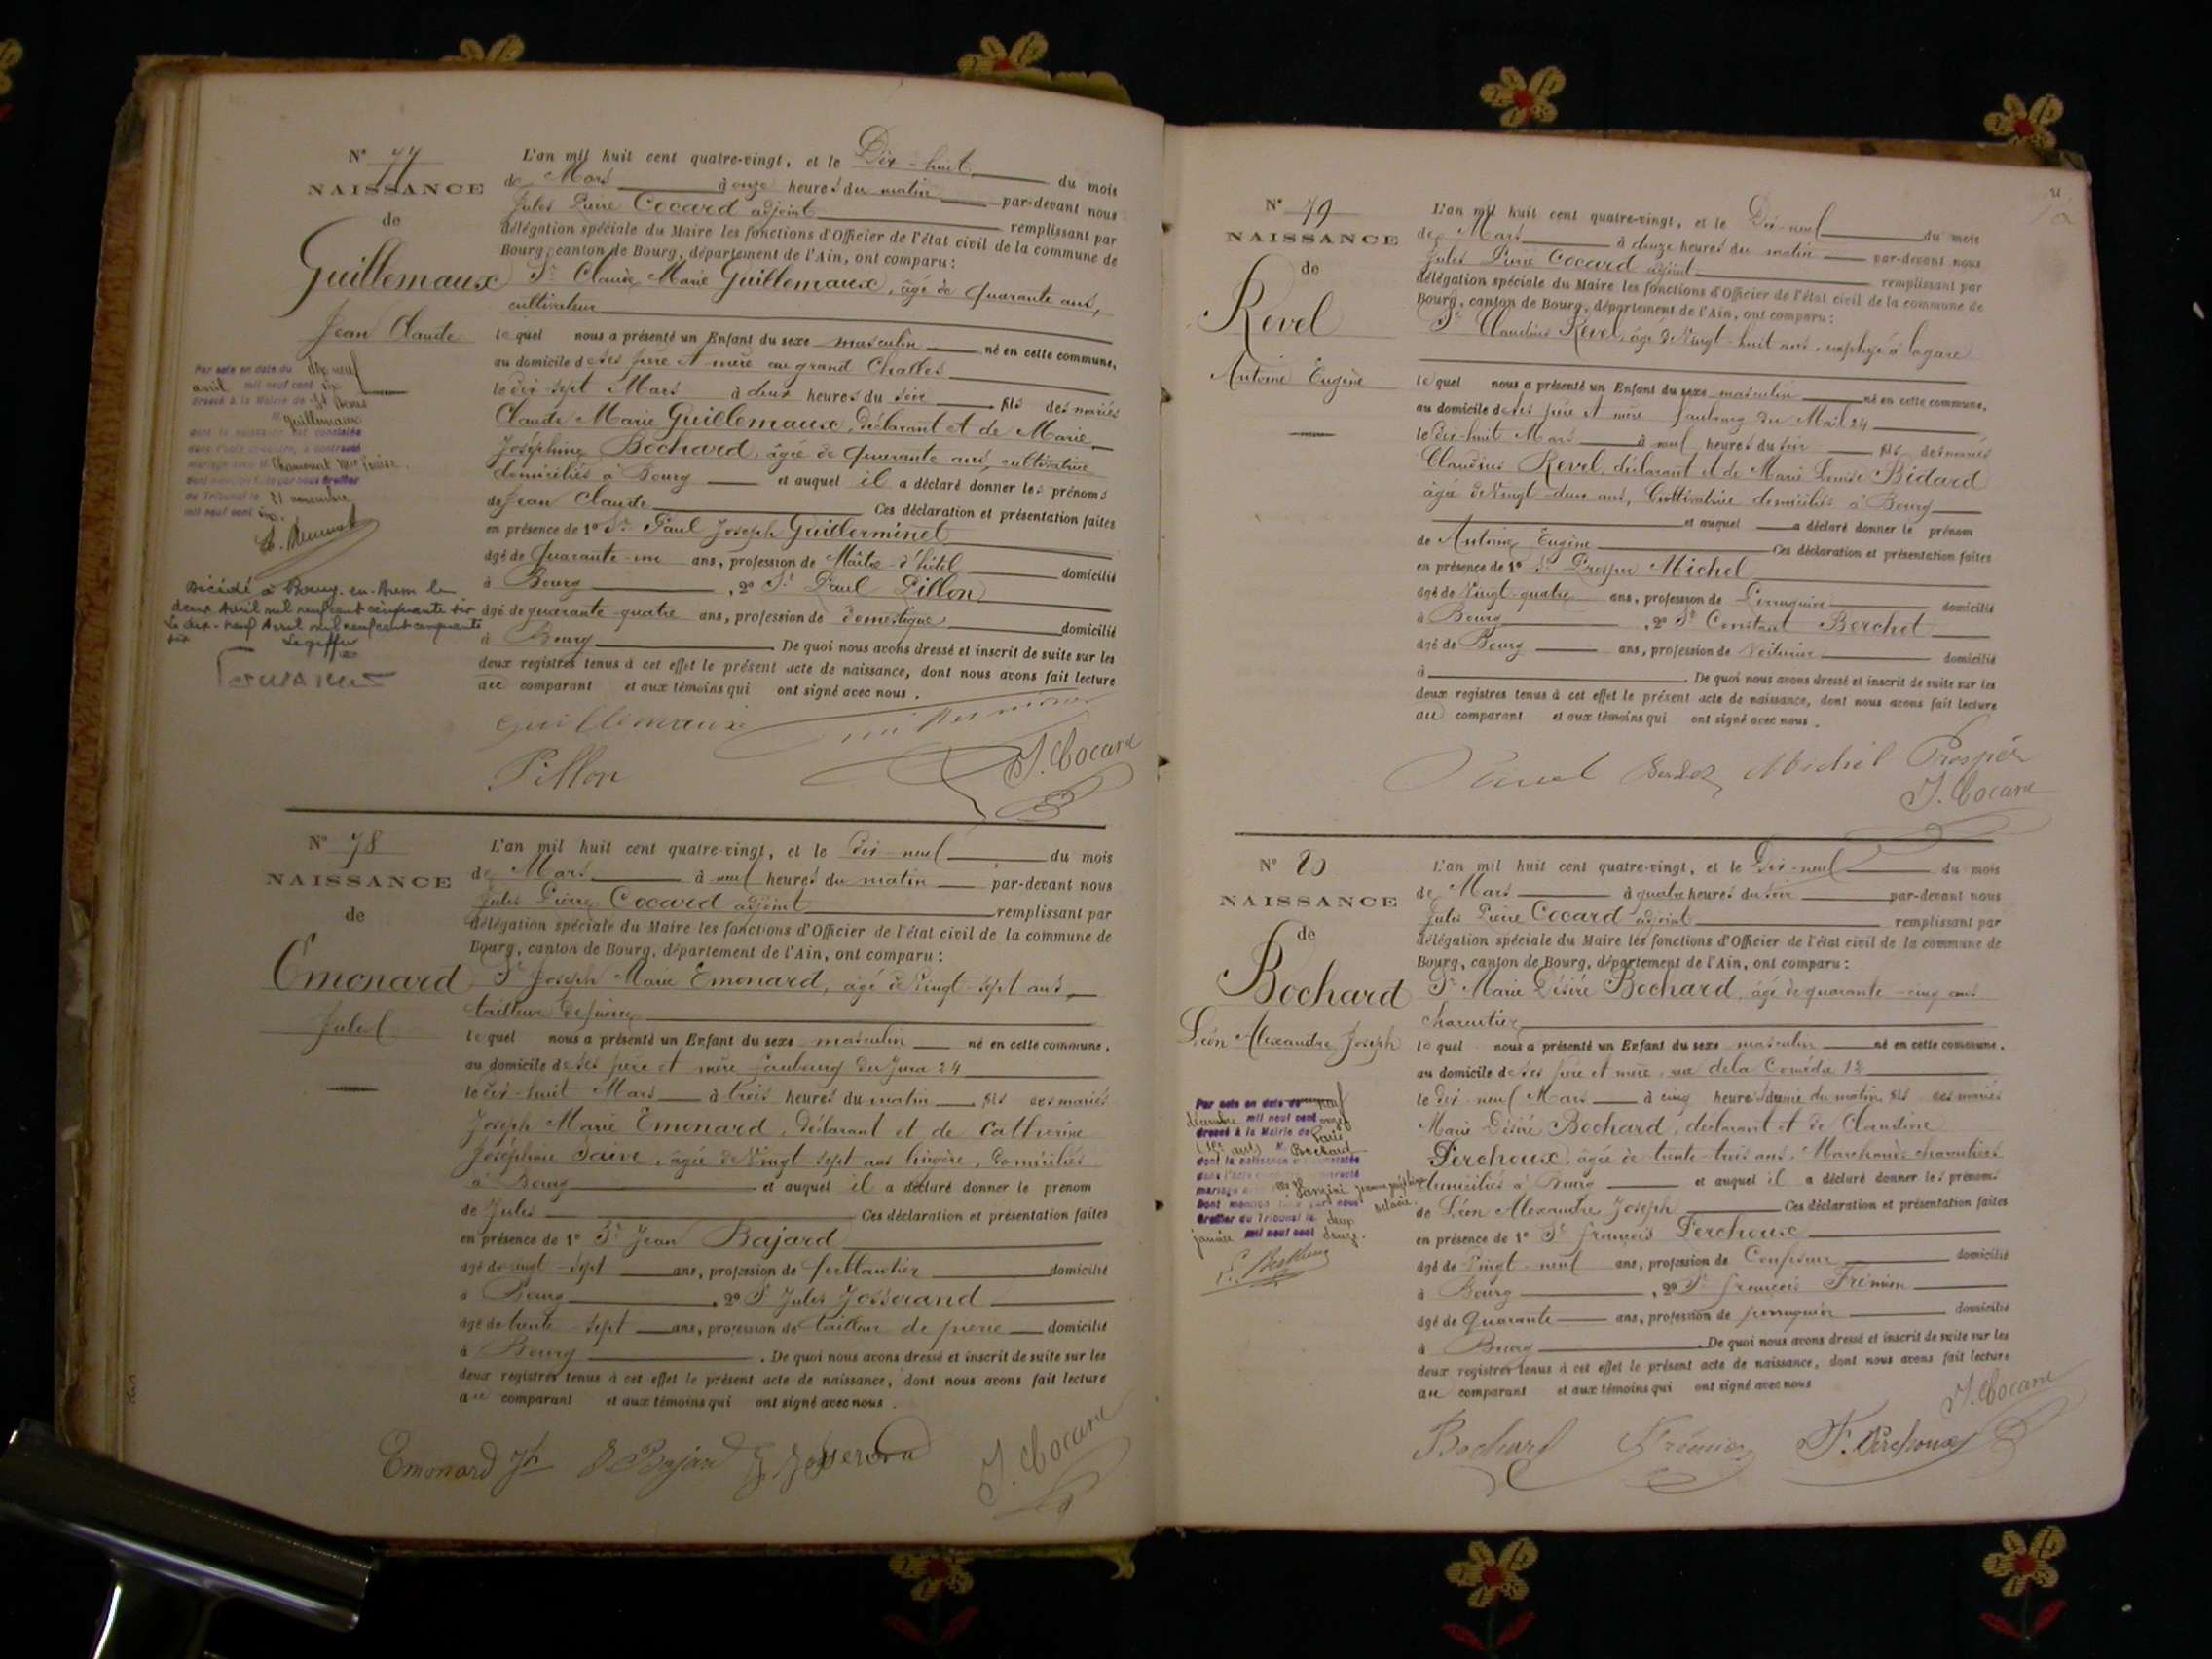 N° 77
NAISSANCE
de
Guillemaux
Jean Claude
Par acte en date du dix neuf
avril mil neuf cent six
dressé à la Mairie de St Denis
Guillemaux
dont la naissance est constatée
dans l'acte ci-contre, a contracté
mariage avec Chamonat Mie Louise
dont mention faite par nous Greffier
du Tribunal le 21 novembre
mil neuf cent six.
Décédé à Bourg-en-Bresse le
deux Avril mil neuf cent cinquante six
Le dix-neuf Avril mil neuf cent cinquante
six Le greffier
L'an mil huit cent quatre-vingt, et le Dix-huit du mois
de Mars à onze heures du matin par-devant nous
Jules Pierre Cocard adjoint remplissant par
délégation spéciale du Maire les fonctions d'Officier de l'état civil de la commune de
Bourg, canton de Bourg, département de l'Ain, ont comparu :
Sr Claude Marie Guillemaux, âgé de quarante ans,
cultivateur
lequel nous a présenté un Enfant du sexe masculin né en cette commune,
au domicile de ses père et mère au grand Challes
le dix sept Mars à deux heures du soir fils des mariés
Claude Marie Guillemaux, déclarant et de Marie
Joséphine Bochard, âgée de quarante ans, cultivatrice
domiciliés à Bourg et auquel il a déclaré donner les prénoms
de Jean Claude Ces déclaration et présentation faites
en présence de 1° Sr Paul Joseph Guillerminet
âgé de quarante-un ans, profession de Maître d'hôtel domicilié
à Bourg, 2° Sr Paul Pillon
âgé de quarante-quatre ans, profession de domestique domicilié
à Bourg De quoi nous avons dressé et inscrit de suite sur les
deux registres tenus à cet effet le présent acte de naissance, dont nous avons fait lecture
au comparant et aux témoins qui ont signé avec nous.
Guillemaux
Pillon J. Cocard
N° 78
NAISSANCE
de
Emonard
Jules
L'an mil huit cent quatre-vingt, et le Dix-neuf du mois
de Mars à neuf heures du matin par-devant nous
Jules Pierre Cocard adjoint remplissant par
délégation spéciale du Maire les fonctions d'Officier de l'état civil de la commune de
Bourg, canton de Bourg, département de l'Ain, ont comparu :
Sr Joseph Marie Emonard, âgé de Vingt-sept ans
tailleur de pierres
lequel nous a présenté un Enfant du sexe masculin né en cette commune,
au domicile de ses père et mère faubourg du Jura 24
le dix-huit Mars à trois heures du matin fils des mariés
Joseph Marie Emonard, déclarant et de Catherine
Joséphine Daive, âgée de Vingt-sept ans lingère, domiciliés
à Bourg et auquel il a déclaré donner le prénom
de Jules Ces déclaration et présentation faites
en présence de 1° Sr Jean Bajard
âgé de vingt-sept ans, profession de ferblantier domicilié
à Bourg, 2° Sr Jules Josserand
âgé de trente-sept ans, profession de tailleur de pierre domicilié
à Bourg. De quoi nous avons dressé et inscrit de suite sur les
deux registres tenus à cet effet le présent acte de naissance, dont nous avons fait lecture
au comparant et aux témoins qui ont signé avec nous.
Emonard Jh Bajard J Josserand J. Cocard
N° 79
NAISSANCE
de
Revel
Antoine Eugène
L'an mil huit cent quatre-vingt, et le Dix-neuf du mois
de Mars à onze heures du matin par-devant nous
Jules Pierre Cocard adjoint remplissant par
délégation spéciale du Maire les fonctions d'Officier de l'état civil de la commune de
Bourg, canton de Bourg, département de l'Ain, ont comparu :
Sr Claudius Revel, âgé de Vingt-huit ans, employé à la gare
lequel nous a présenté un Enfant du sexe masculin né en cette commune,
au domicile de ses père et mère faubourg du Mail 24
le dix-huit Mars à neuf heures du soir fils des mariés
Claudius Revel, déclarant et de Marie Louise Bidard
âgée de Vingt-deux ans, Cultivatrice domiciliés à Bourg
et auquel a déclaré donner le prénom
de Antoine Eugène Ces déclaration et présentation faites
en présence de 1° Sr Prosper Michel
âgé de Vingt-quatre ans, profession de Perruquier domicilié
à Bourg, 2° Sr Constant Berchet
âgé de Bourg ans, profession de Voiturier domicilié
à. De quoi nous avons dressé et inscrit de suite sur les
deux registres tenus à cet effet le présent acte de naissance, dont nous avons fait lecture
au comparant et aux témoins qui ont signé avec nous.
Revel Michel Prosper
J. Cocard
N° 80
NAISSANCE
de
Bochard
Léon Alexandre Joseph
Par acte en date du neuf
décembre mil neuf cent onze
dressé à la Mairie de Paris
Bochard
dont la naissance est constatée
dans l'acte ci-contre a contracté
mariage avec
Dont mention faite par nous
Greffier du Tribunal le deux
janvier mil neuf cent douze.
L'an mil huit cent quatre-vingt, et le Dix-neuf du mois
de Mars à quatre heures du soir par-devant nous
Jules Pierre Cocard adjoint remplissant par
délégation spéciale du Maire les fonctions d'Officier de l'état civil de la commune de
Bourg, canton de Bourg, département de l'Ain, ont comparu :
Sr Marie Désiré Bochard, âgé de quarante-cinq ans
charcutier
lequel nous a présenté un Enfant du sexe masculin né en cette commune,
au domicile de ses père et mère, rue de la Comédie 12
le dix-neuf Mars à cinq heures du matin fils des mariés
Marie Désiré Bochard, déclarant et de Claudine
Perchoux, âgée de trente-trois ans, Marchande charcutière
domiciliés à Bourg et auquel il a déclaré donner les prénoms
de Léon Alexandre Joseph Ces déclaration et présentation faites
en présence de 1° Sr François Perchoux
âgé de Vingt-neuf ans, profession de Confiseur domicilié
à Bourg, 2° Sr François Frémion
âgé de Quarante ans, profession de perruquier domicilié
à Bourg. De quoi nous avons dressé et inscrit de suite sur les
deux registres tenus à cet effet le présent acte de naissance, dont nous avons fait lecture
au comparant et aux témoins qui ont signé avec nous
J. Cocard
Bochard Frémion F. Perchoux